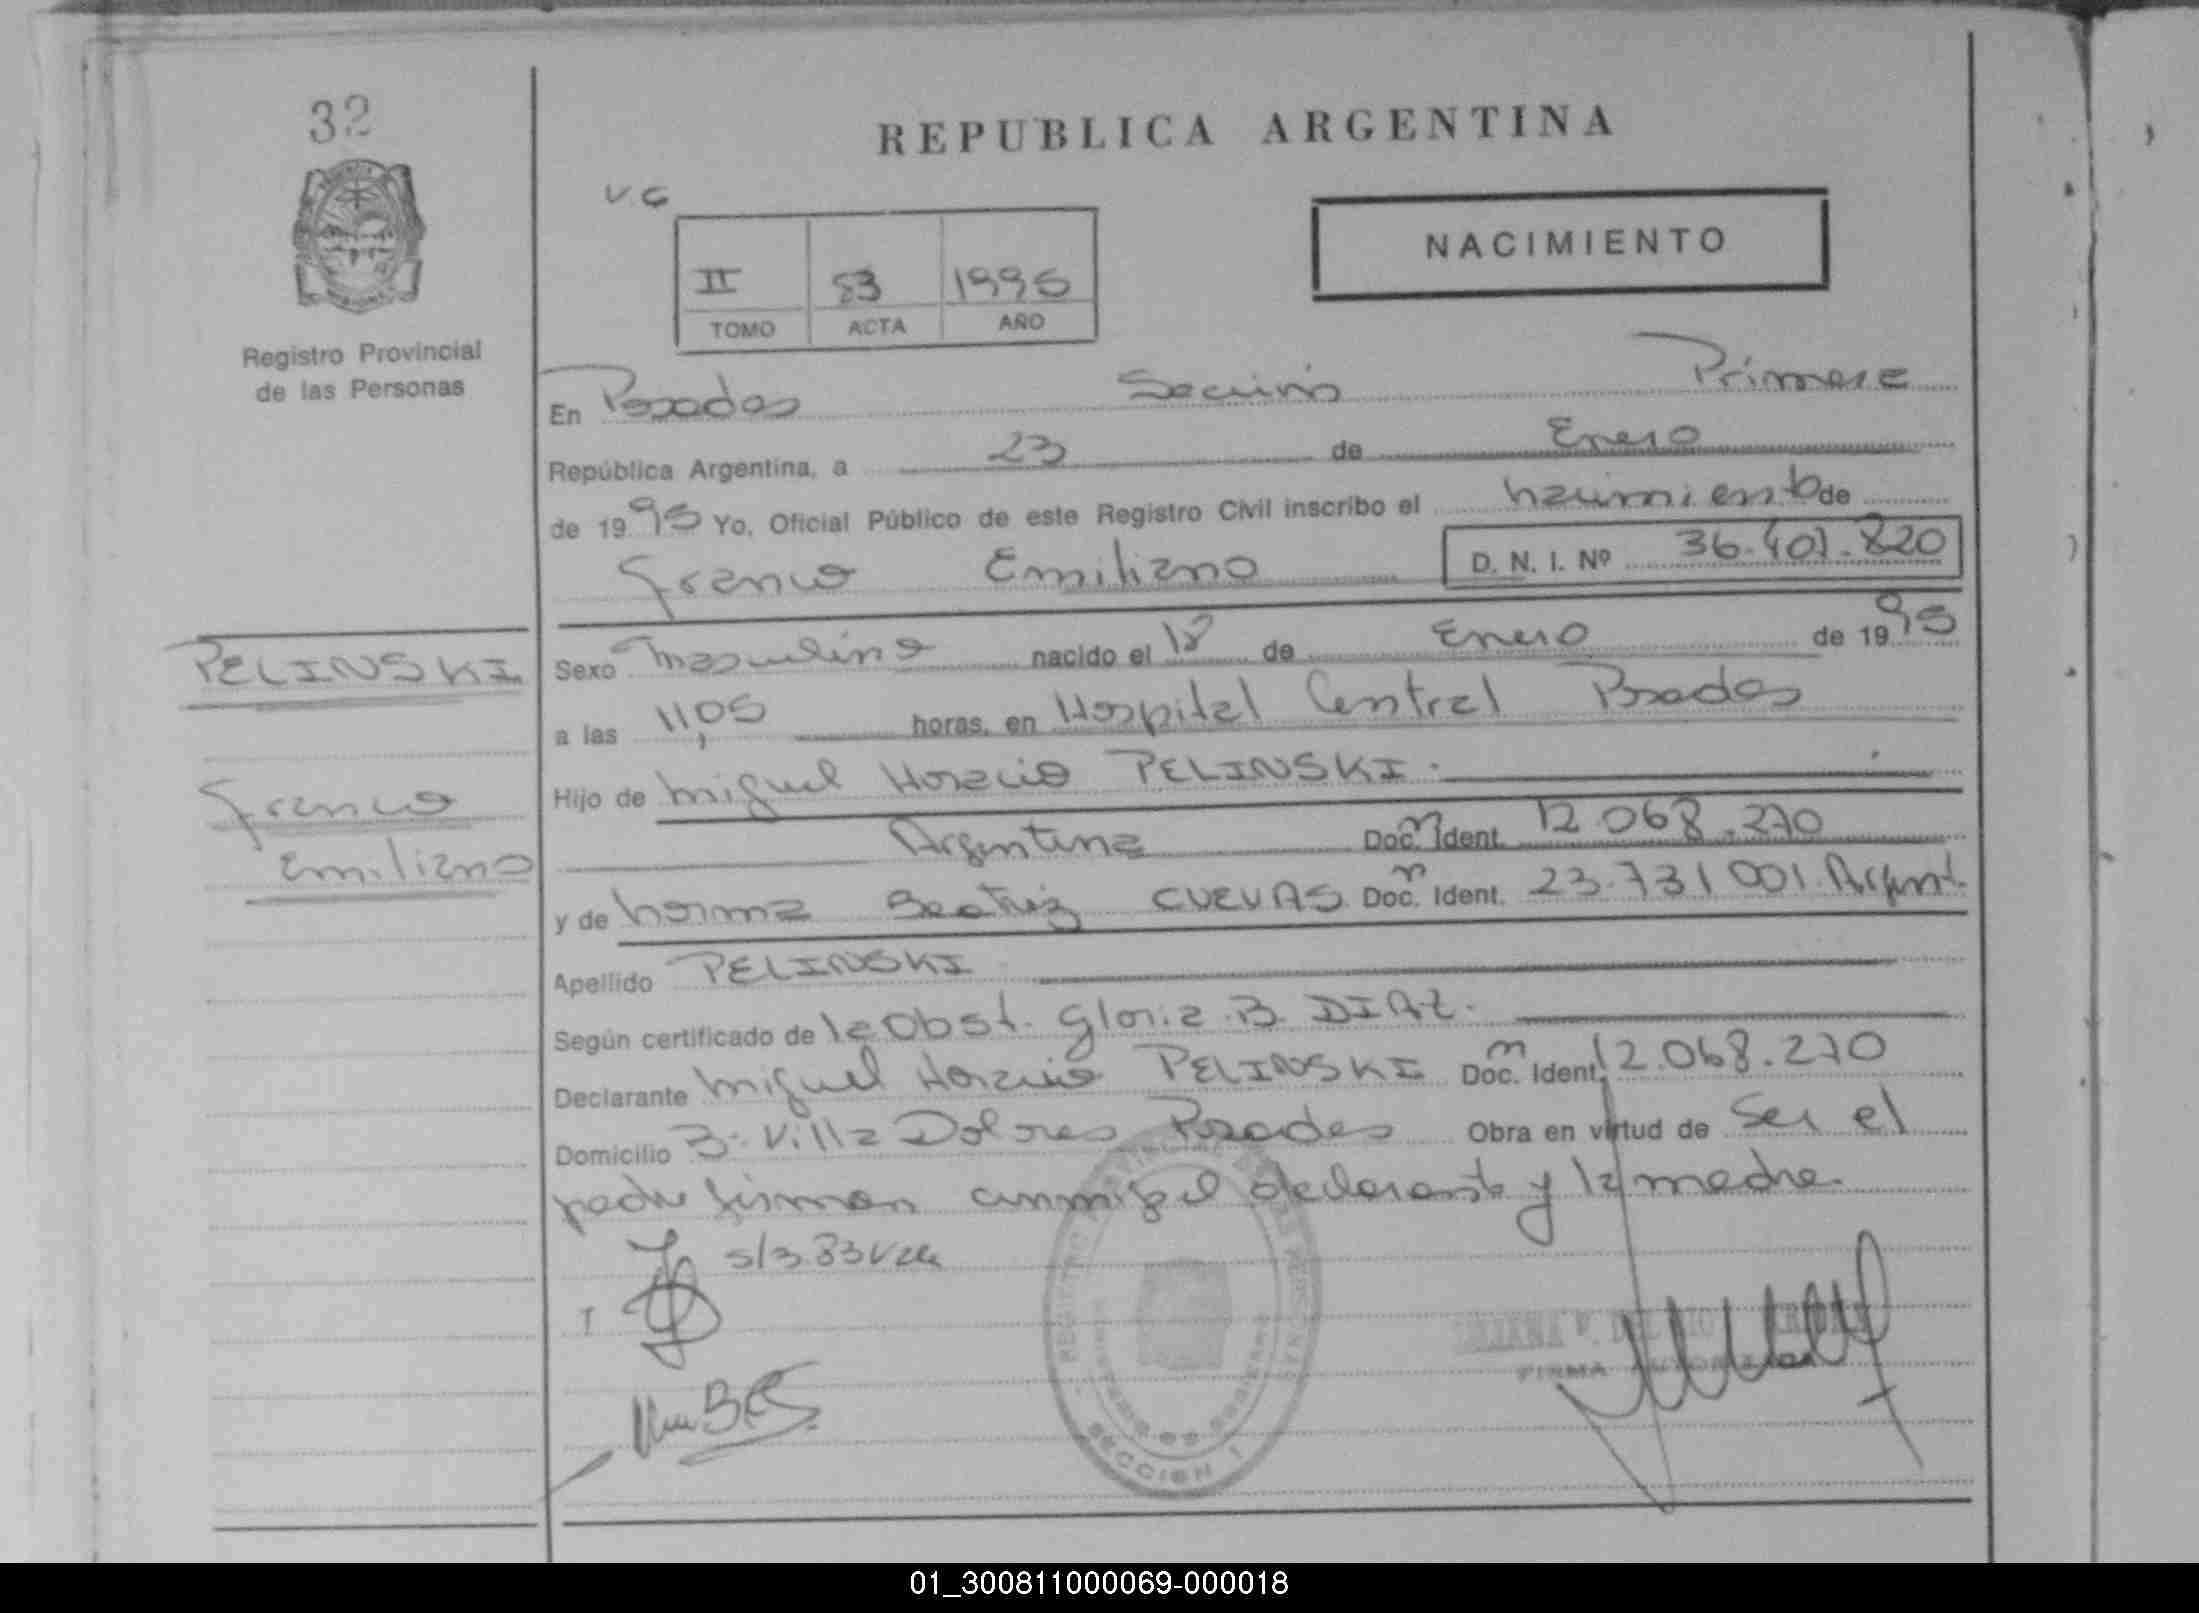 32
REPUBLICA ARGENTINA
V.G
NACIMIENTO
II 83 1995
TOMO ACTA AÑO
Registro Provincial
de las Personas
En Posadas Sección Primera
República Argentina, a 23 de Enero
de 1995 Yo, Oficial Público de este Registro Civil inscribo el nacimiento de
Franco Emiliano D. N. I. Nº 36.401.820
PELINSKI
Sexo masculino nacido el 18 de Enero de 1995
a las 11,05 horas, en Hospital Central Posadas
Franco
Emiliano
Hijo de Miguel Horacio PELINSKI.
Argentina Doc. Ident. 12.068.270
y de Norma Beatriz CUEVAS Doc. Ident. 23.731.001. Argent.
Apellido PELINSKI
Según certificado de la Obst. Gloria B. DIAZ.
Declarante Miguel Horacio PELINSKI Doc. Ident. 12.068.270
Domicilio Bº Villa Dolores Posadas Obra en virtud de ser el
padre firman conmigo el declarante y la madre.
FIRMA AUTORIZADA
SECCION 1
01_300811000069-000018